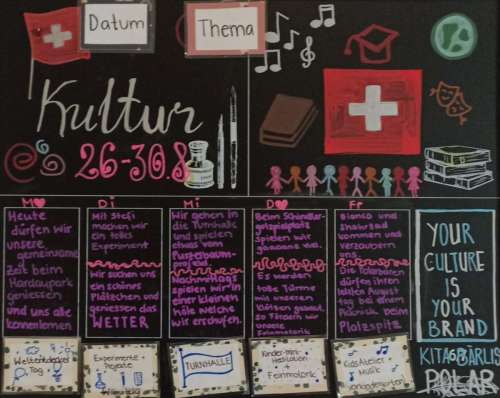 Datum
Thema
Kultur
26-30.8
Mo
Di
Mi
Do
Fr
Heute
dürfen wir
unsere
gemeinsame
Zeit beim
Hardaupark
geniessen
und uns alle
kennenlernen
Mit Stefi
machen wir
ein tolles
Experiment
Wir suchen uns
ein schönes
Plätzchen und
geniessen das
WETTER
Wir gehen in
die Turnhalle
und spielen
etwas vom
Pusteblume-
projekt
Nachmittag
spielen wir in
einer kleinen
höle welche
wir erschufen.
Beim Schindler-
gutspielplatz
spielen wir
gemeinsam
Es werden
tolle Türme
mit unseren
Klötzen gebaut
so fördern wir
unsere
Feinmotorik
Bianco und
Shabnaad
kommen und
verzaubern
uns.
Die Polarbären
dürfen ihren
letzten August
tag bei einem
Picknick beim
Platzspitz
YOUR
CULTURE
IS
YOUR
BRAND
KITABÄRLIS
POLAR
Weltentdecker
Tag
Experimente +
Projekte
Waldtag
TURNHALLE
Kinder-mini-
+
Feinmotorik
KidsAtelier
Musik